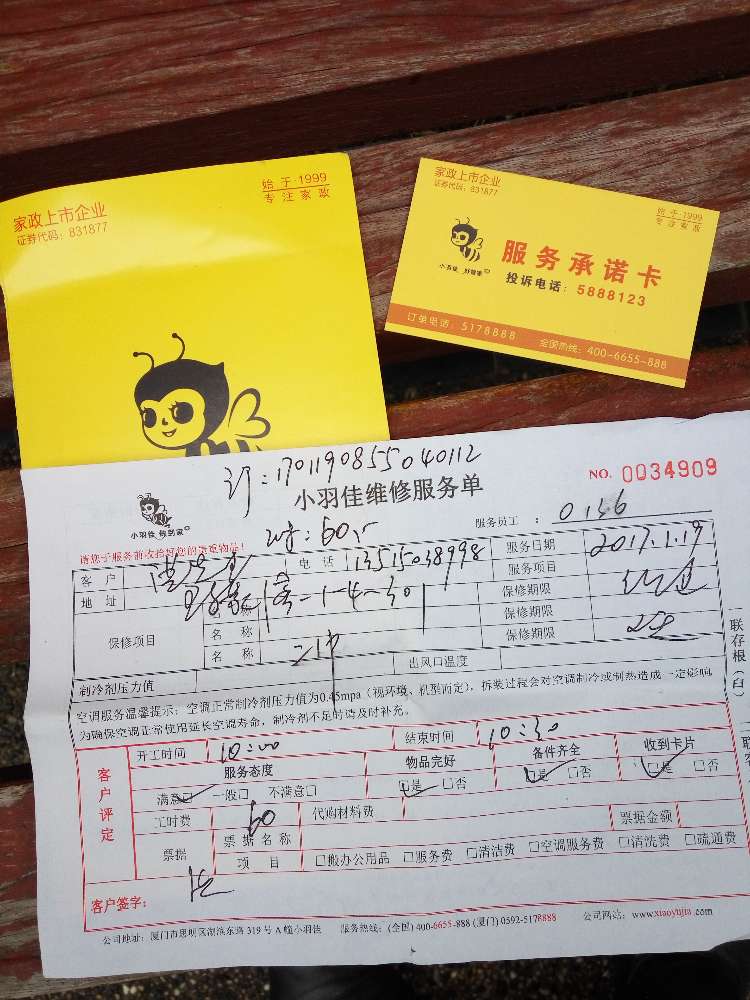 家政上市企业
证券代码：831877
始于1999
专注家政
家政上市企业
证券代码：831877
始于1999
专注家政
小羽佳 好管家
服务承诺卡
投诉电话：5888123
订单电话：5178888 全国热线：400-6655-888
订：1701190855040112
小羽佳维修服务单
NO. 0034909
小羽佳 帮到家
服务员工：0136
请您于服务前收拾好您的贵重物品！
客户 电话 13515038998 服务日期 2017.1.19
地址 服务项目
保修项目 名称 保修期限
名称 保修期限
名称 保修期限
制冷剂压力值 出风口温度
空调服务温馨提示：空调正常制冷剂压力值为0.45mpa（视环境、机型而定），拆装过程会对空调制冷或制热造成一定影响
为确保空调正常使用延长空调寿命，制冷剂不足时请及时补充。
联存根（白）
客户评定
开工时间 10:00 结束时间 10:30
服务态度 物品完好 备件齐全 收到卡片
满意□ 一般□ 不满意□ □是 □否 □是 □否 □是 □否
工时费 60 代购材料费
票据 票据名称 票据金额
项目 □搬办公用品 □服务费 □清洁费 □空调服务费 □清洗费 □疏通费
客户签字：
公司地址：厦门市思明区湖滨东路319号A幢小羽佳 服务热线：(全国) 400-6655-888 (厦门) 0592-5178888 公司网站：www.xiaoyujia.com